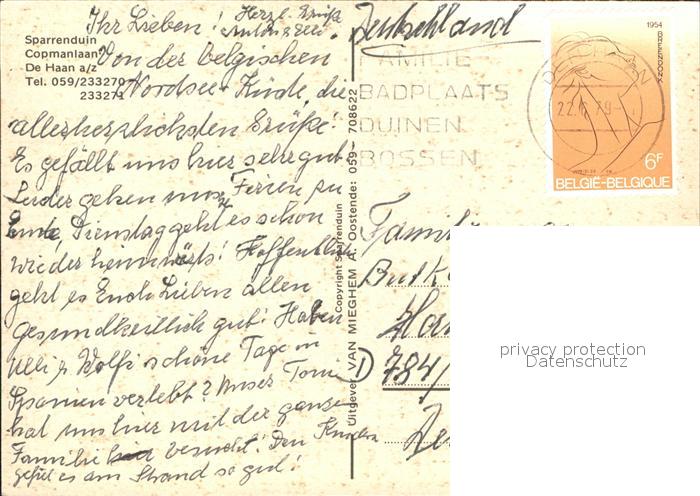 Sparrenduin
Copmanlaan
De Haan a/z
Tel. 059/233270
233271
Ihr Lieben!
Herzl. Grüße
Von der belgischen
Nordsee-Küste, die
allerherzlichsten Grüße!
Es gefällt uns hier sehr gut.
Leider gehen uns. Ferien zu
Ende, Dienstag geht es schon
wieder heimwärts! Hoffentlich
geht es Euch Lieben allen
gesundheitlich gut! Haben
Ulli & Wolfi schöne Tage in
Spanien verlebt? Unser Toni
hat uns hier mit der ganzen
Familie besucht! Den Kindern
gefiel es am Strand so gut!
Uitgever: VAN MIEGHEM A. Oostende: 059/ 708622
Copyright Sparrenduin
Deutschland
FAMILIE
BADPLAATS
DUINEN
BOSSEN
DE HAAN
22.6.79
1954
BREENDONK
6F
BELGIË-BELGIQUE
Familie
Butk
D 784
privacy protection
Datenschutz